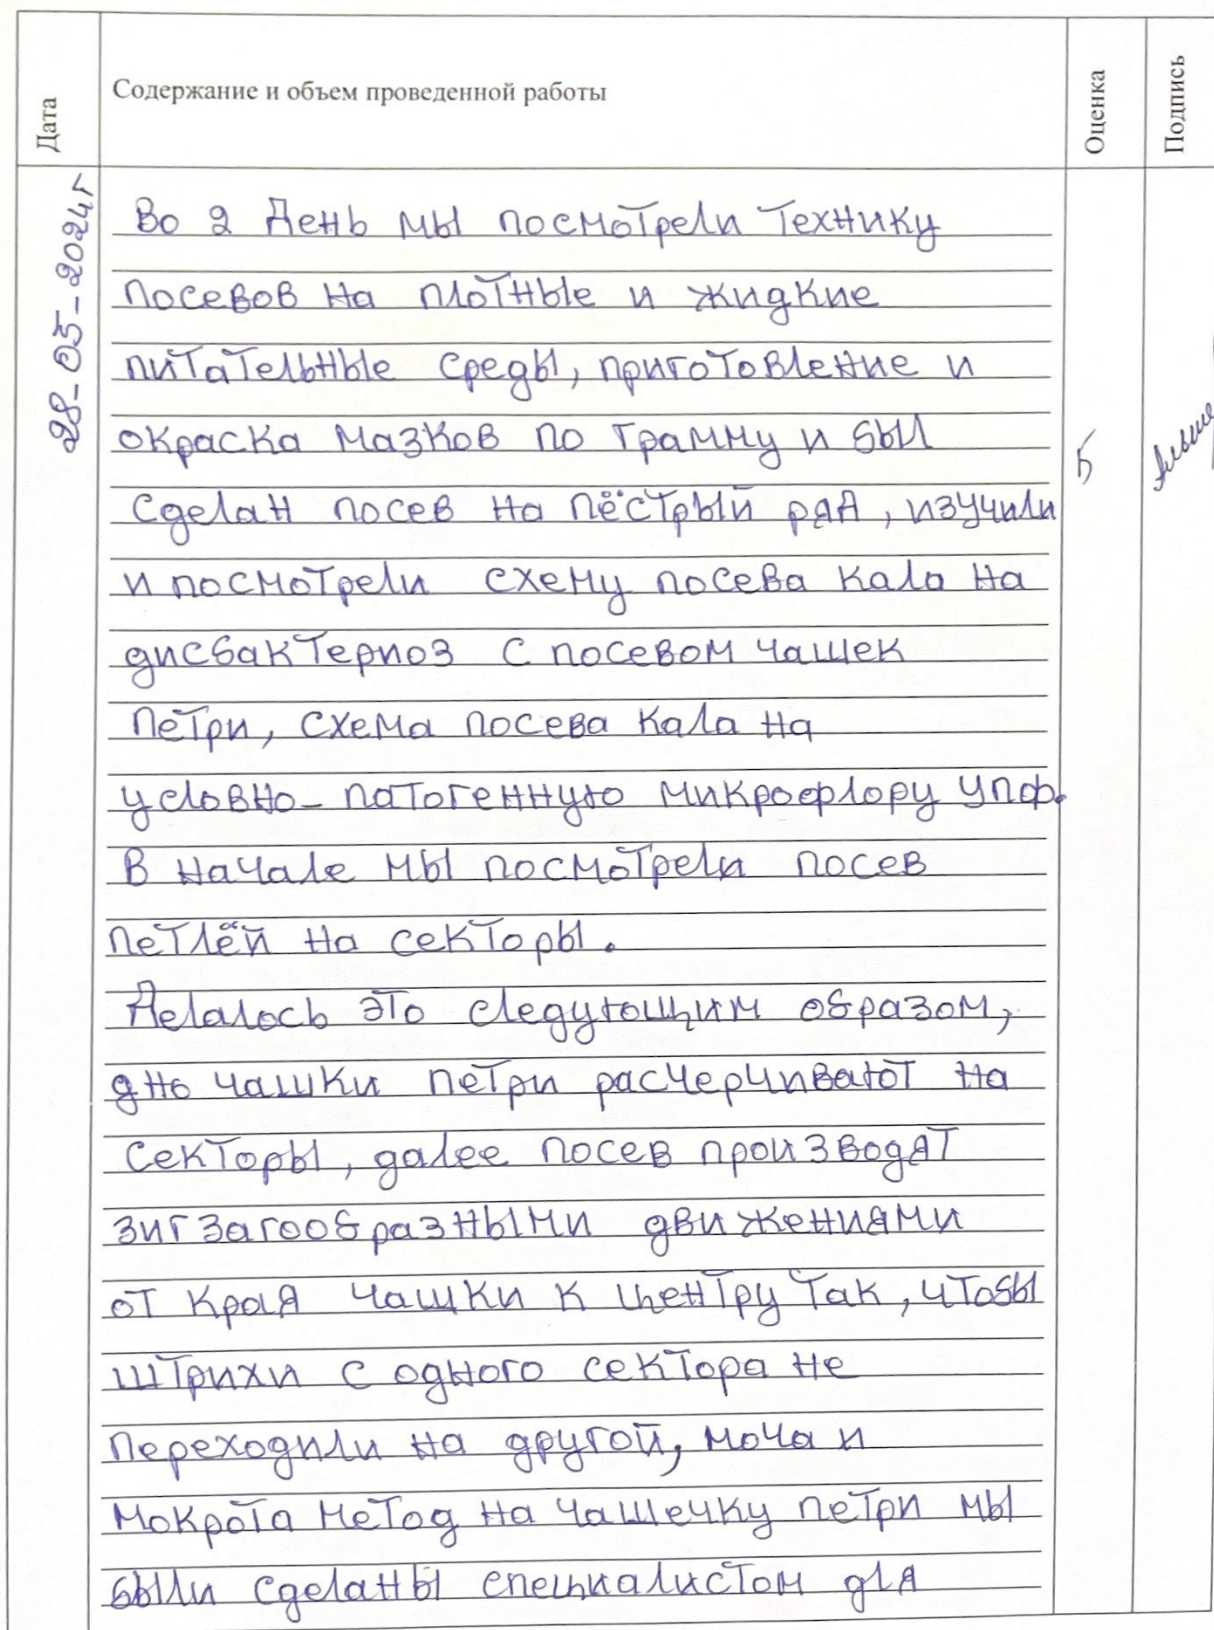 Дата
Содержание и объем проведенной работы
Оценка
Подпись
28-05-2024г
Во 2 День мы посмотрели технику
посевов на плотные и жидкие
питательные среды, приготовление и
окраска мазков по грамму и был
сделан посев на пёстрый ряд, изучили
и посмотрели схему посева кала на
дисбактериоз с посевом чашек
петри, схема посева кала на
условно-патогенную микрофлору УПФ.
В начале мы посмотрели посев
петлёй на секторы.
Делалось это следующим образом,
дно чашки петри расчерчивают на
секторы, далее посев производят
зигзагообразными движениями
от края чашки к центру так, чтобы
штрихи с одного сектора не
переходили на другой, моча и
мокрота метод на чашечку петри мы
были сделаны специалистом для
5